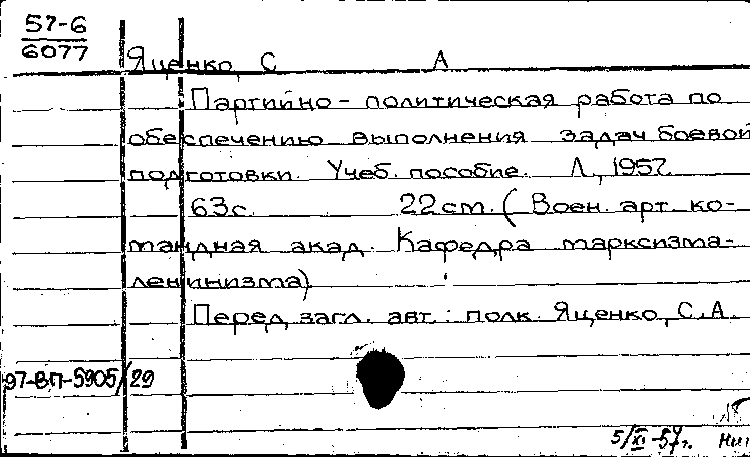 57-6
6077
Яценко, С А
Партийно-политическая работа по
обеспечению выполнения задач боевой
подготовки. Учеб. пособие. Л., 1957.
63с. 22см. (Воен. арт. ко-
мандная акад. Кафедра марксизма-
ленинизма)
Перед загл. авт.: полк. Яценко, С.А.
97-ВП-5905/29
5/XI-57г.